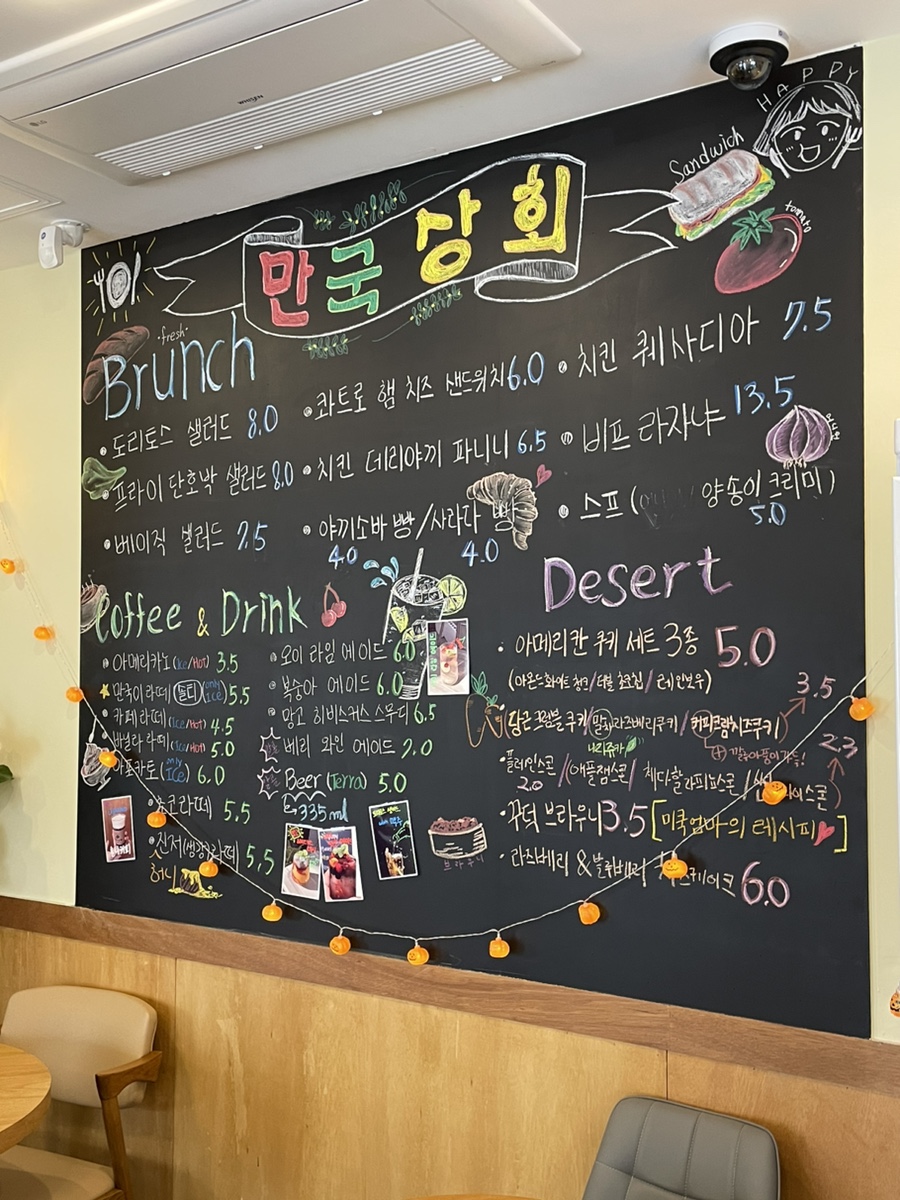 WHISEN
HAPPY
Sandwich
tomato
만국상회
fresh
Brunch
도리토스 샐러드 8.0
프라이 단호박 샐러드 8.0
베이직 샐러드 7.5
콰트로 햄 치즈 샌드위치 6.0
치킨 데리야끼 파니니 6.5
야끼소바 빵/사라다 빵
4.0 4.0
치킨 퀘사디아 7.5
비프 라자냐 13.5
스프( 양송이 크리미)
5.0
Coffee & Drink
아메리카노(Ice/Hot) 3.5
만국이라떼 (only Ice) 5.5
카페라떼(Ice/Hot) 4.5
바닐라 라떼(Ice/Hot) 5.0
아포카토(only ICe) 6.0
초코라떼 5.5
진저(생강)라떼 5.5
허니
오이 라임 에이드 6.0
복숭아 에이드 6.0
망고 히비스커스 스무디 6.5
베리 와인 에이드 7.0
Beer (Terra) 5.0
335ml
Desert
아메리칸 쿠키 세트 3종 5.0
3.5
당근 크럼블 쿠키/말차라즈베리쿠키/커피크림치즈쿠키
2.3
플레인스콘/(애플잼스콘/
2.0
꾸덕 브라우니 3.5 [미쿡엄마의 레시피]
브라우니
라즈베리 & 블루베리 6.0